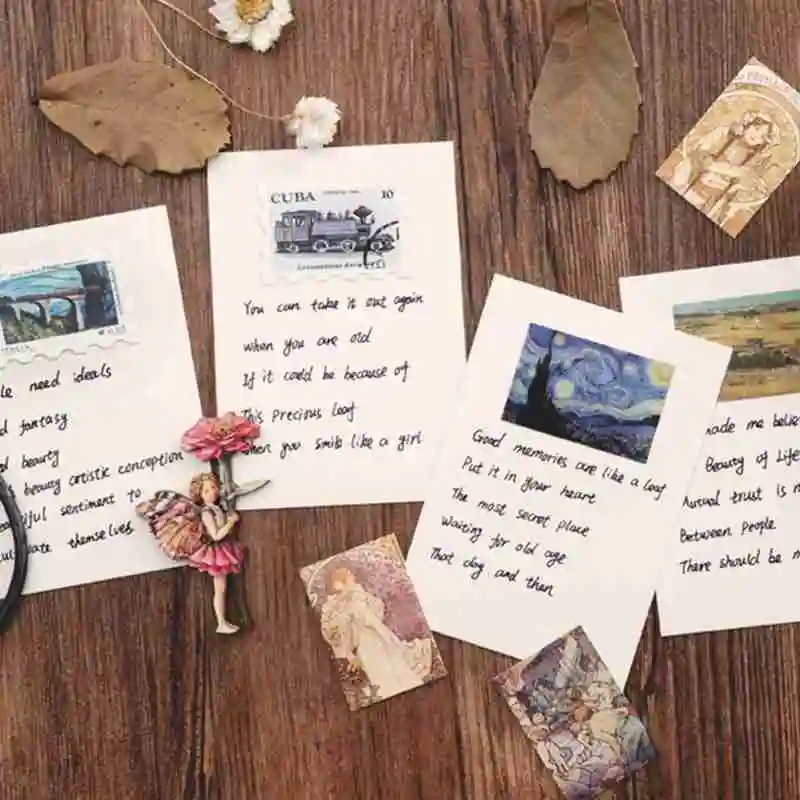 le need ideals
d fantasy
d beauty
beauty artistic conception
ful sentiment to
ate themselves
CUBA 10
You can take it out again
when you are old
If it could be because of
This precious leaf
when you smile like a girl
Good memories are like a leaf
Put it in your heart
The most secret place
Waiting for old age
That day and then
made me belie
Beauty of Life
Mutual trust is n
Between People
There should be m